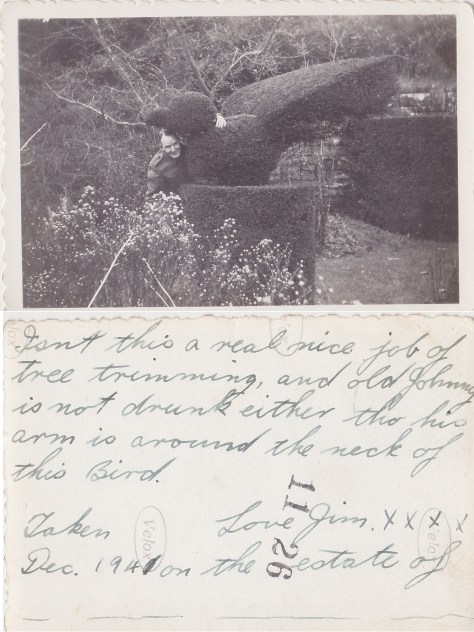 Isn't this a real nice job of
tree trimming, and old Johnny
is not drunk either tho his
arm is around the neck of
this Bird.
Taken Love Jim. x x x x
Dec. 1941 on the estate of
11 26
Velox
Velox